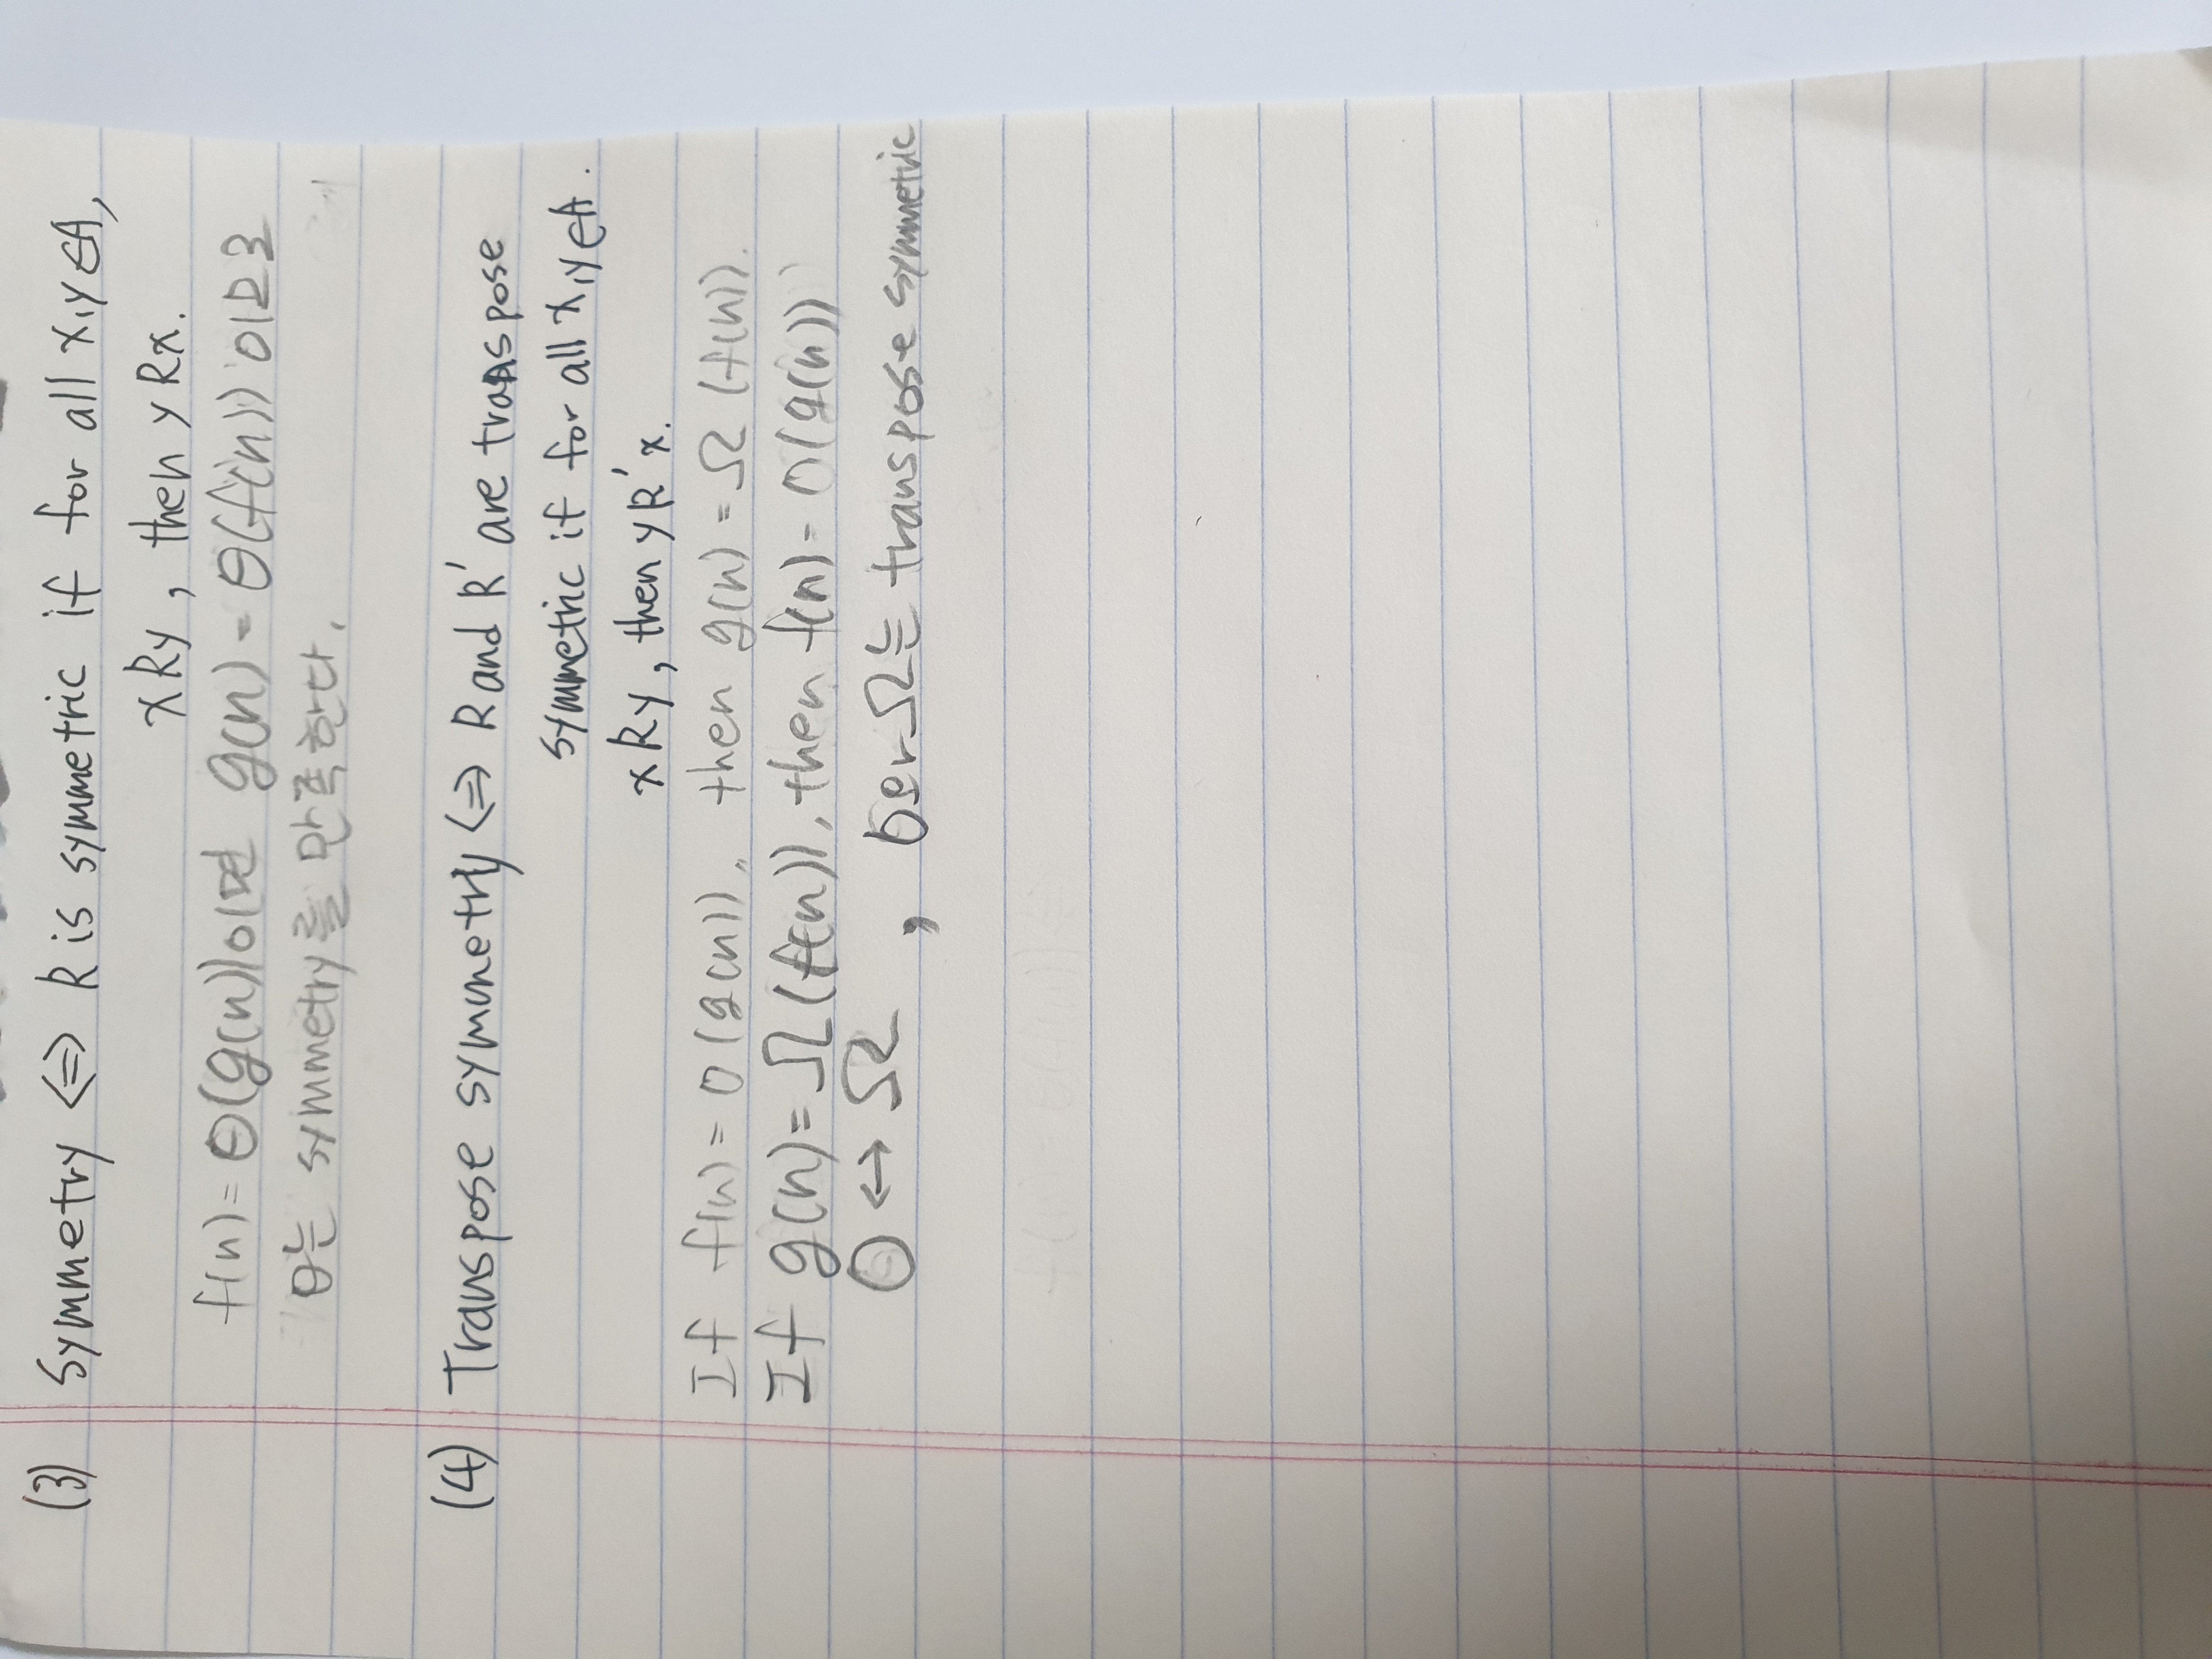 (3) Symmetry ⇔ R is symmetric if for all x,y∈A,
xRy, then yRx.
f(n) = Θ(g(n))이면 g(n) = Θ(f(n)) 이므로
Θ는 symmetry를 만족한다.
(4) Transpose symmetry ⇔ R and R' are transpose
symmetric if for all x,y∈A.
xRy, then yR'x.
If f(n) = O(g(n)), then g(n) = Ω(f(n)).
If g(n) = Ω(f(n)), then f(n) = O(g(n))
O ↔ Ω , O와 Ω는 transpose symmetric